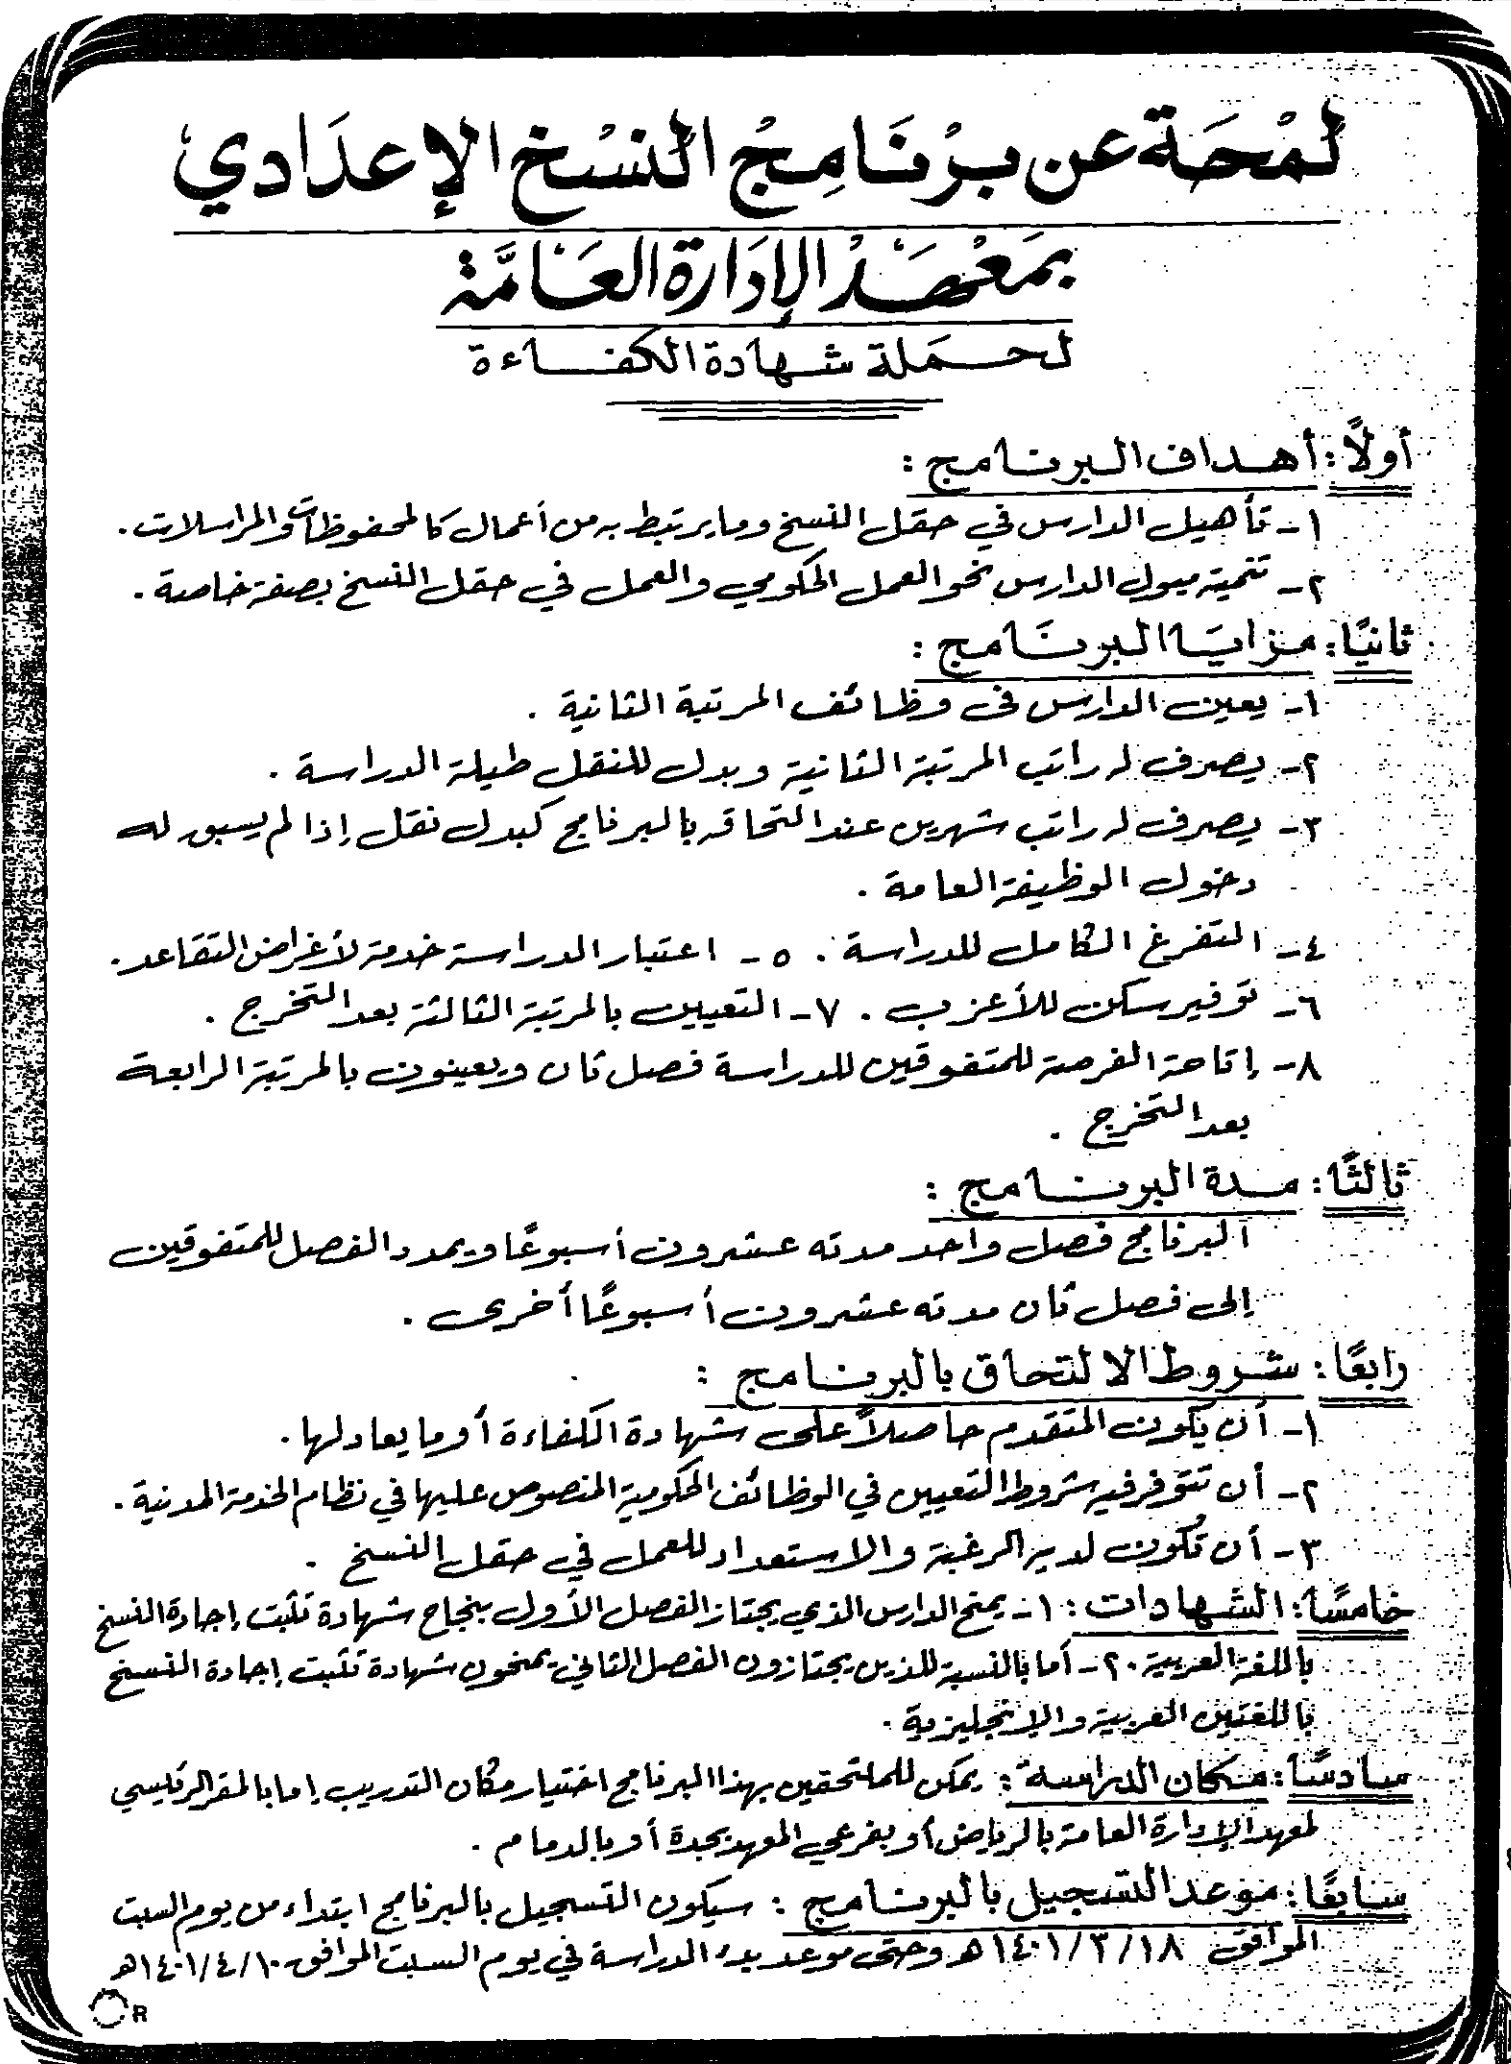 لمْحَة عن برْنَامِجُ النسْخ الإعدَادي
بمَعْهَدُ الإدَارة العَامَّة
لحمَلة شهادة الكفاءة
أولاً: أهداف البرنامج :
١- تأهيل الدارس في حقل النسخ وما يرتبط به من أعمال كالمحفوظات والمراسلات .
٢- تنمية ميول الدارس نحو العمل الحكومي والعمل في حقل النسخ بصفة خاصة .
ثانيًا: مزايَا البرنَامج :
١- يعين الدارس فى وظائف المرتبة الثانية .
٢- يصرف له راتب المرتبة الثانية وبدل للنقل طيلة الدراسة .
٣- يصرف له راتب شهرين عند التحاقه بالبرنامج كبدل نقل إذا لم يسبق له
دخول الوظيفة العامة .
٤- التفرغ الكامل للدراسة . ٥- اعتبار الدراسة خدمة لأغراض التقاعد .
٦- توفير سكن للأعزب . ٧- التعيين بالمرتبة الثالثة بعد التخرج .
٨- إتاحة الفرصة للمتفوقين للدراسة فصل ثان ويعينون بالمرتبة الرابعة
بعد التخرج .
ثالثًا: مدة البرنامج :
البرنامج فصل واحد مدته عشرون أسبوعًا ويمدد الفصل للمتفوقين
إلى فصل ثان مدته عشرون أسبوعًا أخرى .
رابعًا: شروط الالتحاق بالبرنامج :
١- أن يكون المتقدم حاصلاً على شهادة الكفاءة أو ما يعادلها .
٢- أن تتوفر فيه شروط التعيين في الوظائف الحكومية المنصوص عليها في نظام الخدمة المدنية .
٣- أن تكون لديه الرغبة والاستعداد للعمل في حقل النسخ .
خامسًا: الشهادات : ١- يمنح الدارس الذي يجتاز الفصل الأول بنجاح شهادة تثبت إجادة النسخ
باللغة العربية . ٢- أما بالنسبة للذين يجتازون الفصل الثاني يمنحون شهادة تثبت إجادة النسخ
باللغتين العربية والإنجليزية .
سادسًا: مكان الدراسة : يمكن للملتحقين بهذا البرنامج اختيار مكان التدريب إما بالمقر الرئيسي
لمعهد الإدارة العامة بالرياض أو بفرعي المعهد بجدة أو بالدمام .
سابعًا: موعد التسجيل بالبرنامج : سيكون التسجيل بالبرنامج ابتداء من يوم السبت
الموافق ١٤٠١/٣/١٨هـ وحتى موعد بدء الدراسة في يوم السبت الموافق ١٤٠١/٤/١٠هـ
R